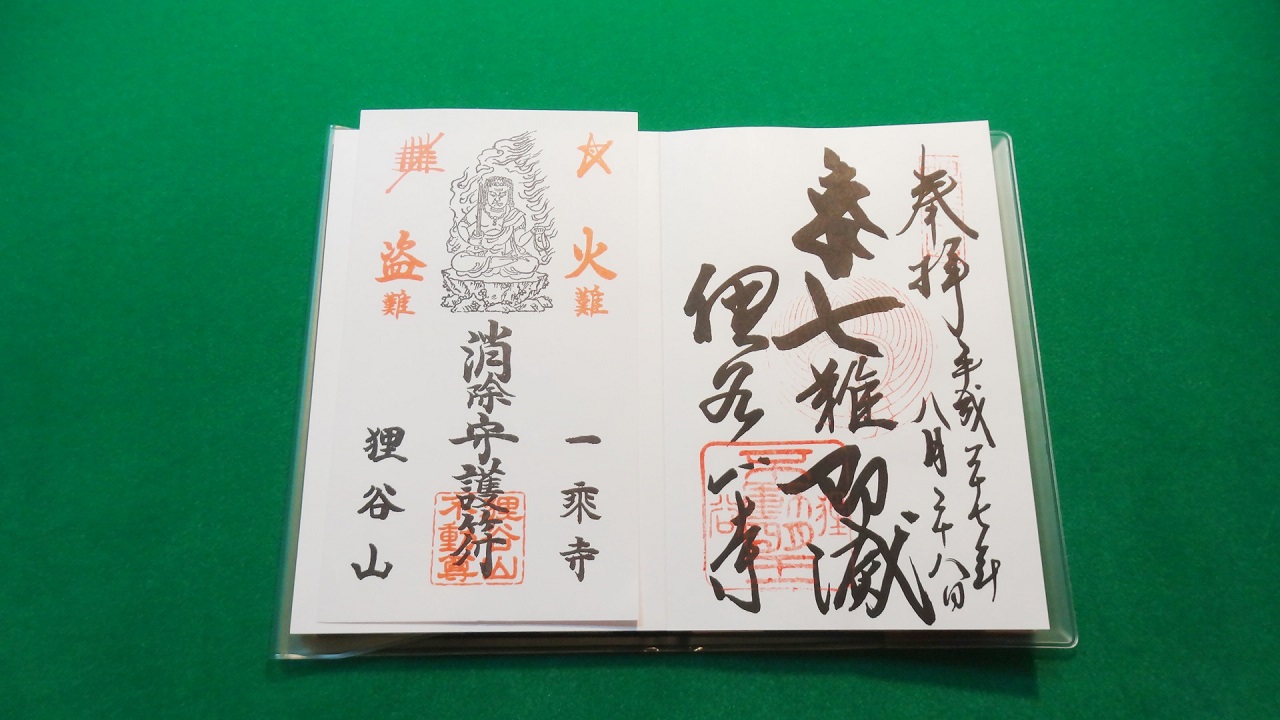 奉拝
平成二十七年
八月二十八日
七難即滅
狸谷山寺
火難
一乘寺
消除守護符
狸谷山
不動尊
盗難
狸谷山